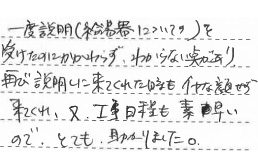 一度説明(給湯器について)を
受けたのにかかわらず、わからない点があり
再び説明しに来てくれた時もイヤな顔せず
来てくれ、又工事日程も素早い
ので、とても、助かりました。